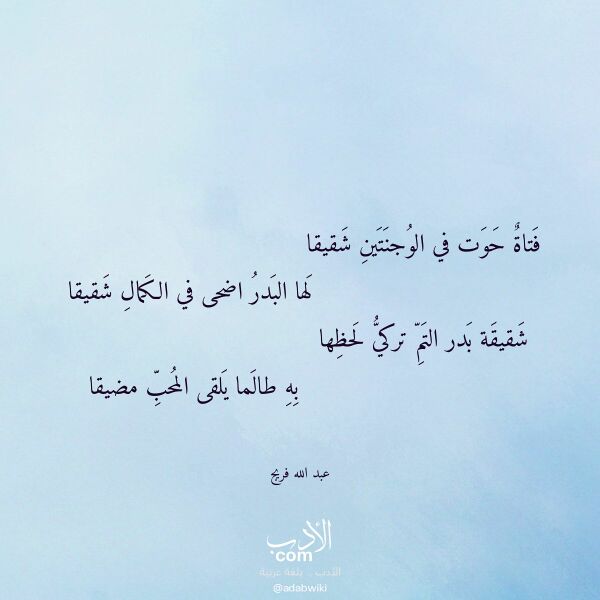 فَتاةٌ حَوَت في الوُجنَتَينِ شَقيقا
لَها البَدرُ اضحى في الكَمالِ شَقيقا
شَقيقَة بَدر التَمِّ تركيُّ لَحظِها
بِهِ طالَما يَلقى المُحبِّ مضيقا
عبد الله فريج
الأدب
com
الأدب .. بلغة عربية
@adabwiki